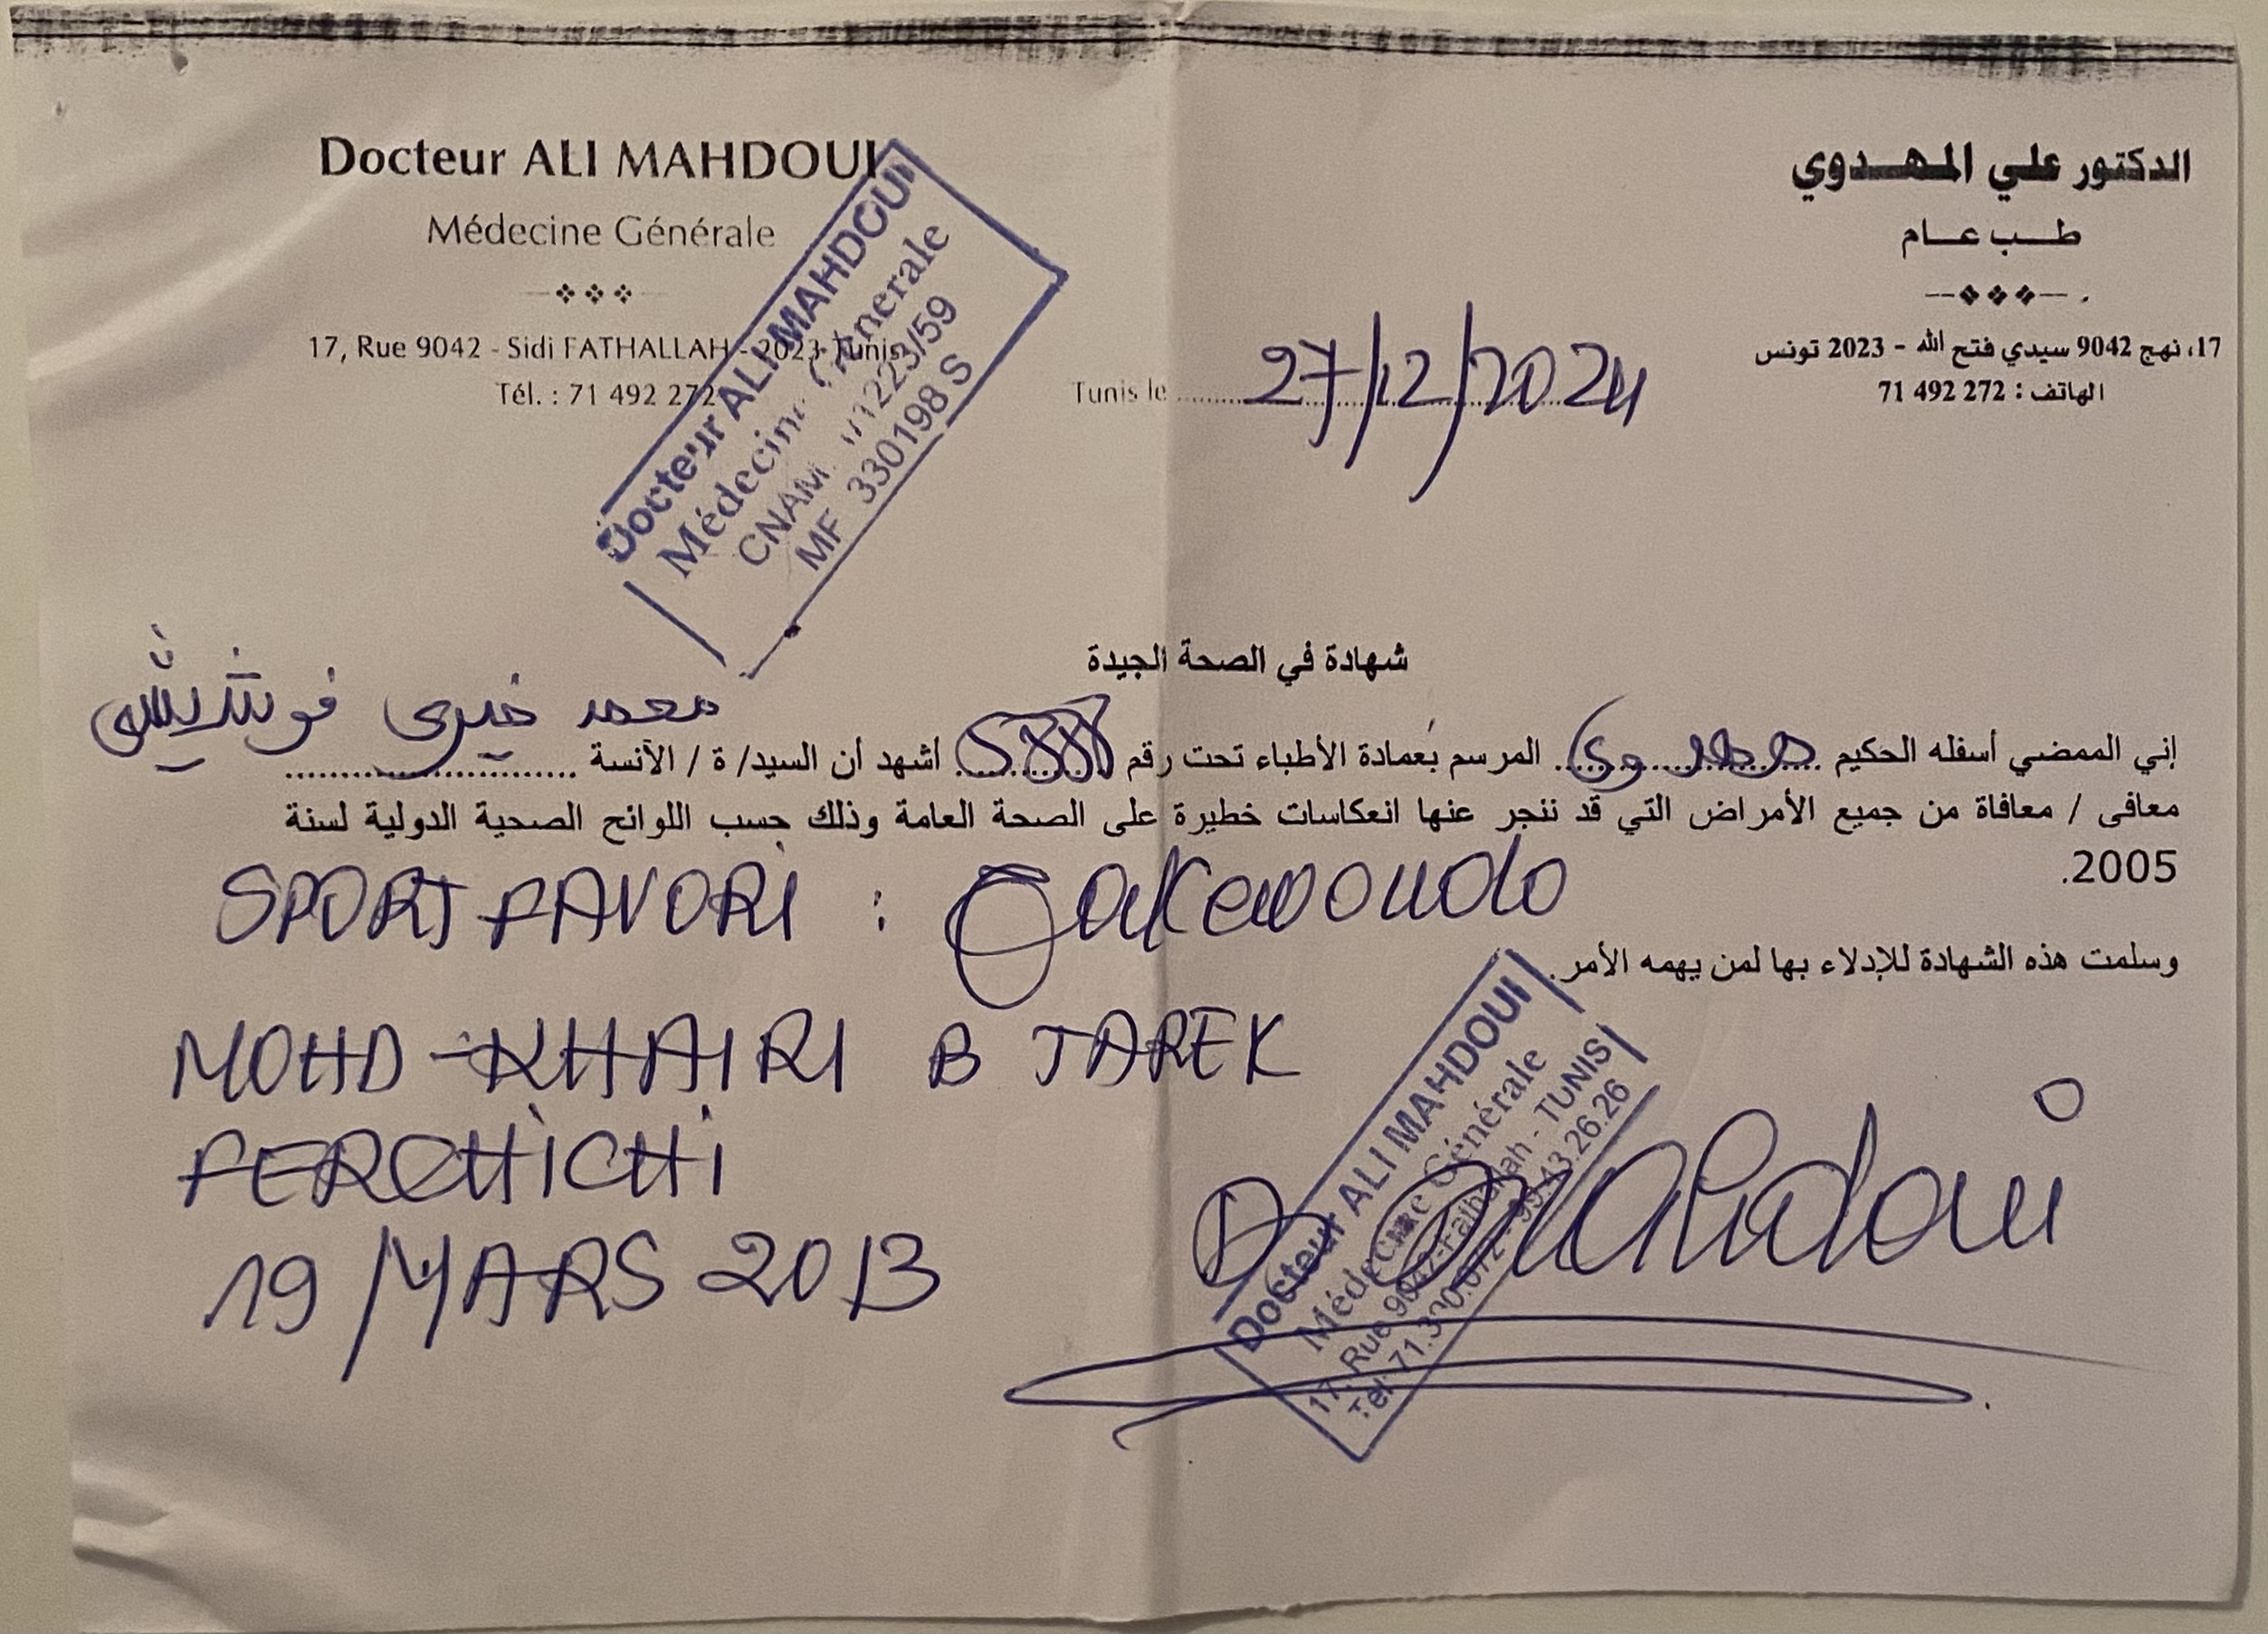 Docteur ALI MAHDOUI
Médecine Générale
17, Rue 9042 - Sidi FATHALLAH - 2023 Tunis
Tél. : 71 492 272
الدكتور علي المهدوي
طب عام
17، نهج 9042 سيدي فتح الله - 2023 تونس
الهاتف : 272 492 71
Docteur ALI MAHDOUI
Médecine Générale
CNAM 1/1223/59
MF 330198 S
Tunis le 27/12/2024
شهادة في الصحة الجيدة
إني الممضي أسفله الحكيم المهدوي المرسم بعمادة الأطباء تحت رقم أشهد أن السيد/ ة / الآنسة محمد خيري فرشيشي
معافى / معافاة من جميع الأمراض التي قد ننجر عنها انعكاسات خطيرة على الصحة العامة وذلك حسب اللوائح الصحية الدولية لسنة
2005.
SPORT FAVORI : Taekwondo
وسلمت هذه الشهادة للإدلاء بها لمن يهمه الأمر.
MOHD-KHAIRI B TAREK
FERCHICHI
19 MARS 2013
Docteur ALI MAHDOUI
Médecine Générale
17, Rue 9042-Fathallah - TUNIS
Tel 71.390.072 - 99.43.26.26
Dr Mahdoui